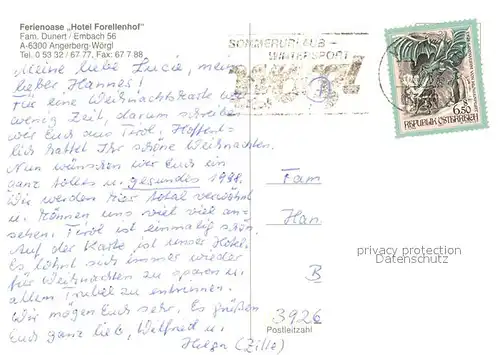 Ferienoase „Hotel Forellenhof"
Fam. Dunert / Embach 56
A-6300 Angerberg-Wörgl
Tel. 0 53 32 / 67 77, Fax: 67 7 88
SOMMERURLAUB -
WINTERSPORT
6.50
REPUBLIK ÖSTERREICH
Meine liebe Lucie, mein
lieber Hannes!
Für eine Weihnachtskarte war
wenig Zeit, darum schreiben
wir Euch aus Tirol. Hoffent-
lich hattet Ihr schöne Weihnachten.
Nun wünschen wir Euch ein
ganz tolles u. gesundes 1998.
Wir werden hier total verwöhnt
u. können uns viel viel an-
sehen. Tirol ist einmalig schön.
Auf der Karte ist unser Hotel.
Es lohnt sich immer wieder
für Weihnachten zu sparen u.
allem Trubel zu entrinnen.
Wir mögen Euch sehr. Es grüßen
Euch ganz lieb, Wilfried u.
(Zille)
Fam
Han
B
3926
Postleitzahl
privacy protection
Datenschutz